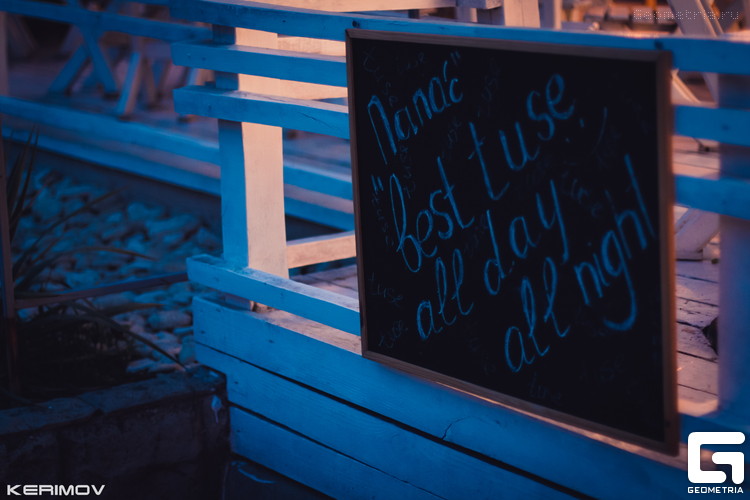 Geometria.ru
"Папаć"
"best tuse
all day
all night
KERIMOV
G
GEOMETRIA